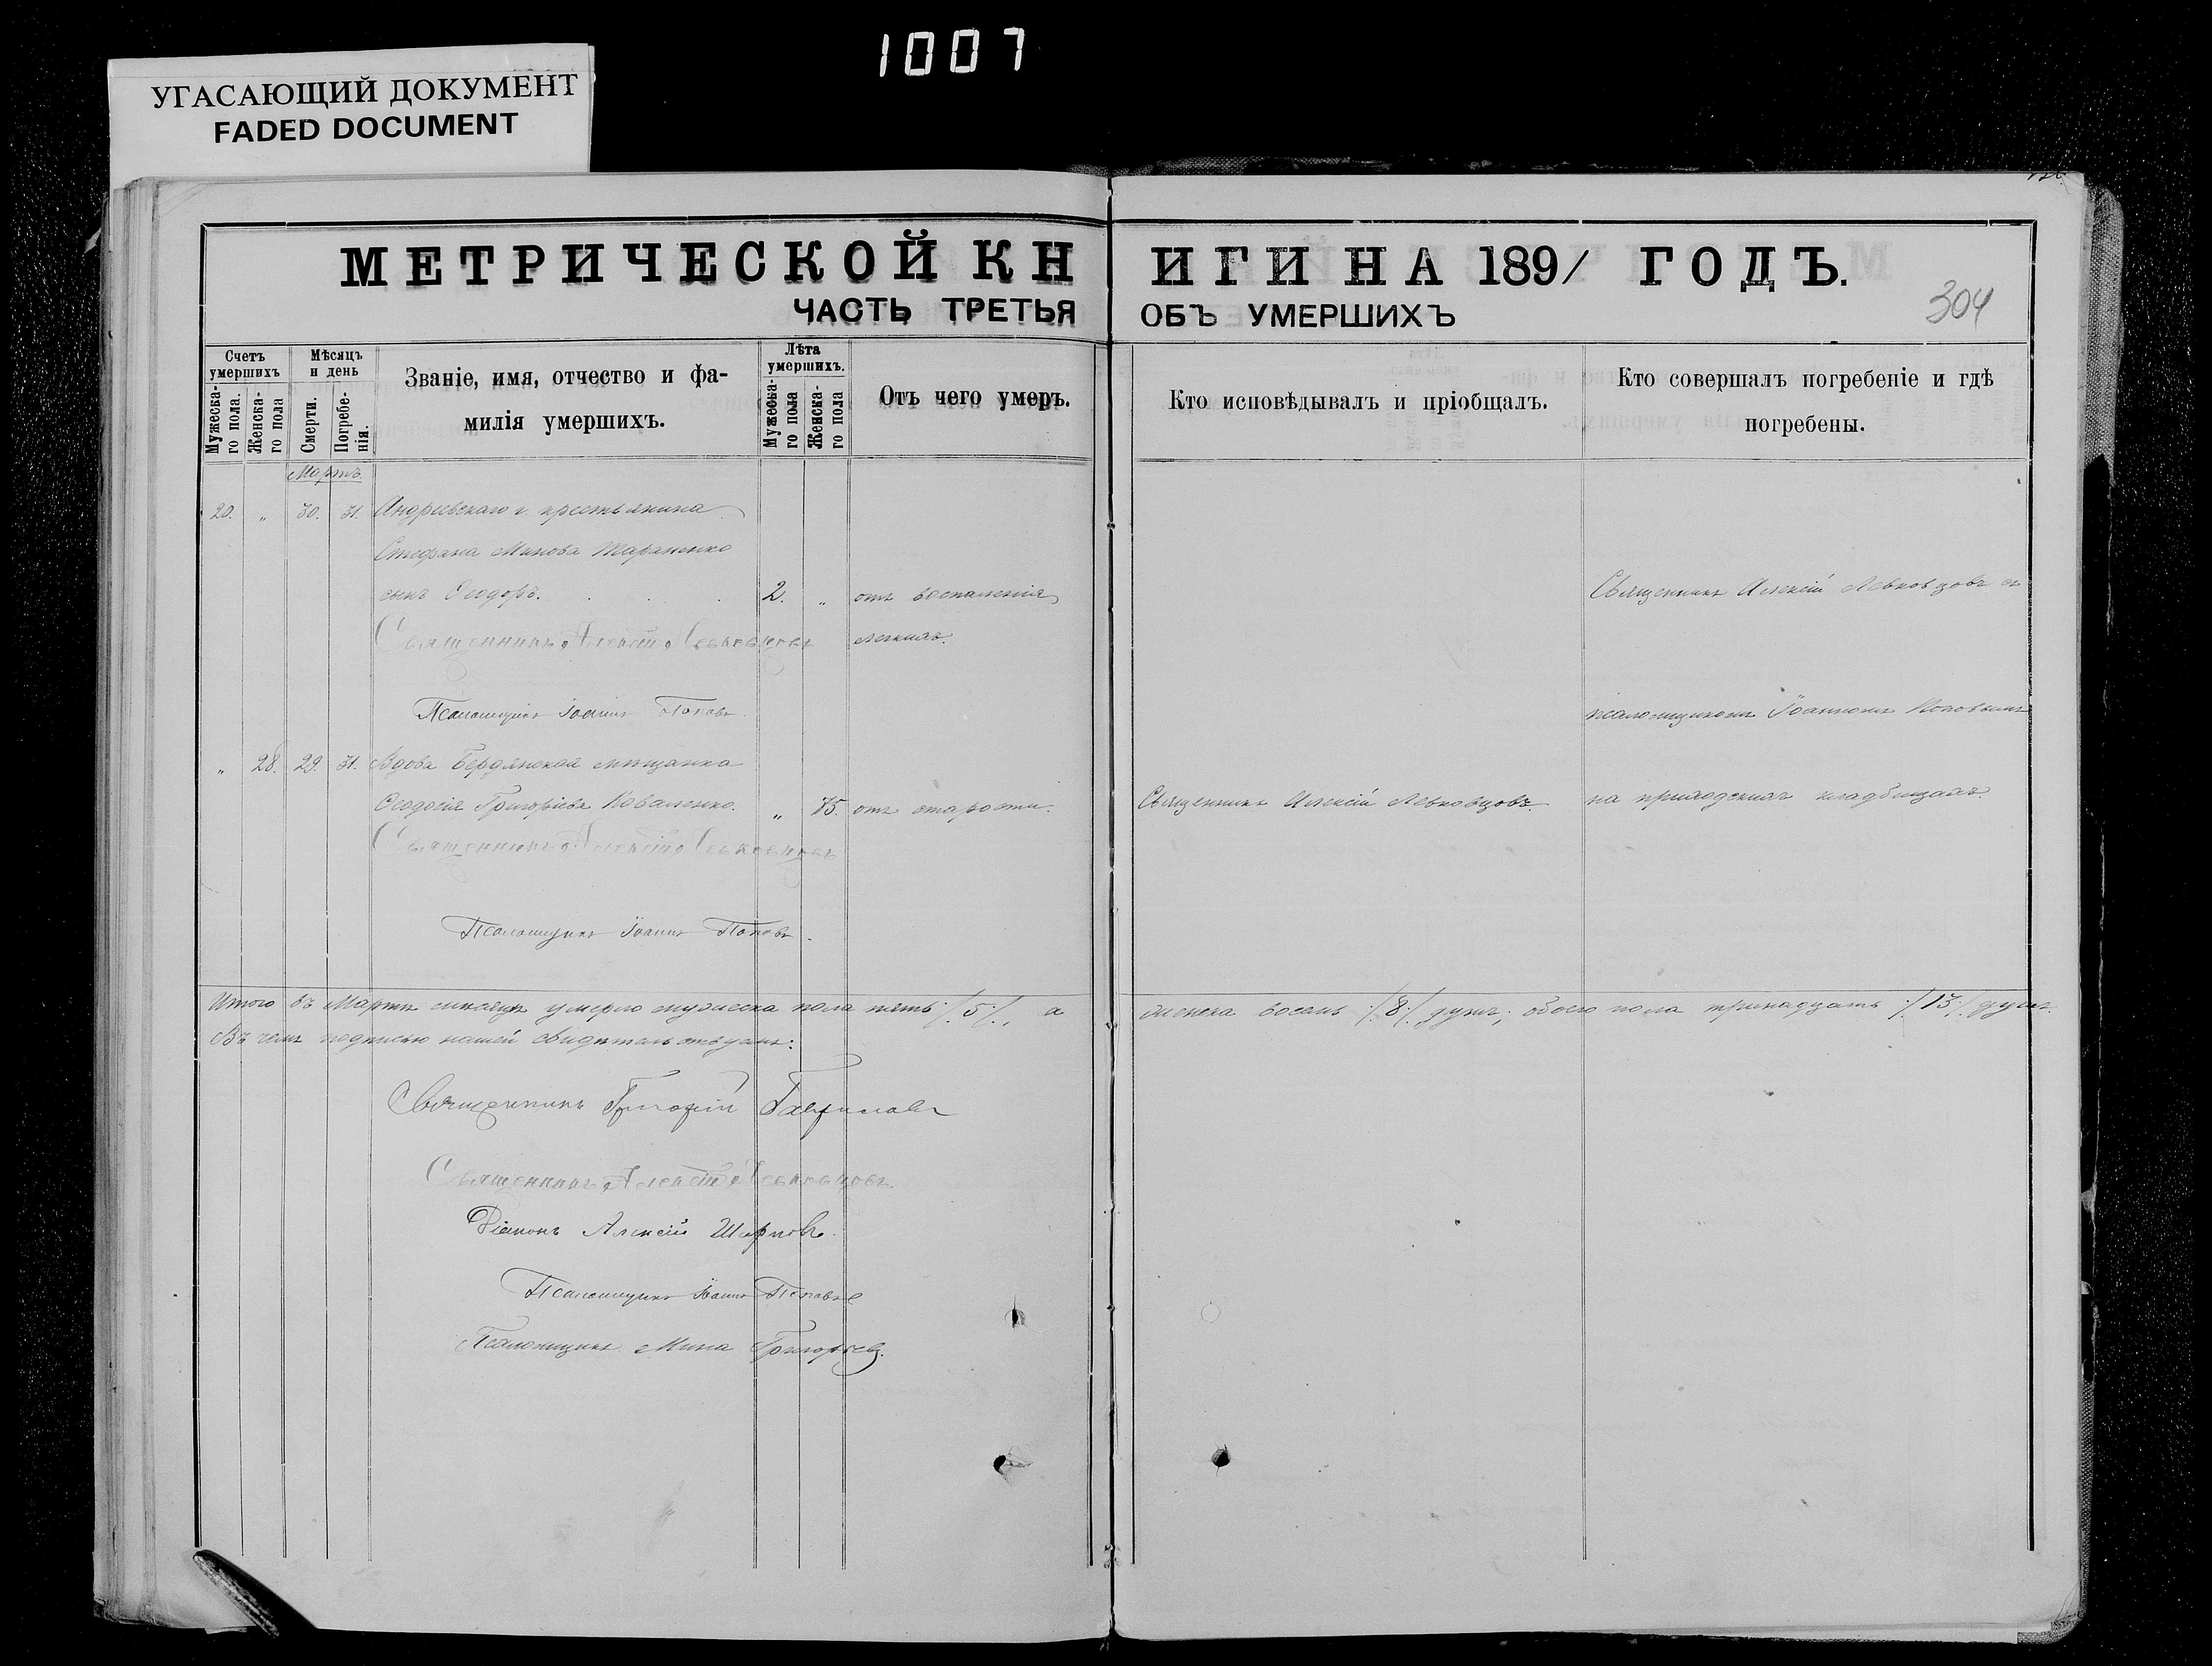 1007
УГАСАЮЩИЙ ДОКУМЕНТ
FADED DOCUMENT
МЕТРИЧЕСКОЙ КНИГИ НА 1891 ГОДЪ.
ЧАСТЬ ТРЕТЬЯ ОБЪ УМЕРШИХЪ
304
Счетъ умершихъ
Мужеска-го пола.
Женска-го пола
Мѣсяцъ и день
Смерти.
Погребе-нія.
Званіе, имя, отчество и фа-
милія умершихъ.
Лѣта умершихъ.
Мужеска-го пола
Женска-го пола
Отъ чего умеръ.
Кто исповѣдывалъ и пріобщалъ.
Кто совершалъ погребеніе и гдѣ
погребены.
Мартъ
20. „ 30. 31. Андреевскаго с. крестьянина
Стефана Минова Тараненко
сынъ Ѳеодоръ. 2. „ отъ воспаленія Священникъ Алексій Левковцовъ съ
Священникъ Алексій Левковцовъ легкихъ.
Псаломщикъ Іоаннъ Поповъ. псаломщикомъ Іоанномъ Поповымъ
„ 28. 29. 31. Вдова Бердянская мѣщанка
Ѳеодосія Григоріева Коваленко. „ 75. отъ старости. Священникъ Алексій Левковцовъ. на приходскихъ кладбищахъ.
Священникъ Алексій Левковцовъ
Псаломщикъ Іоаннъ Поповъ.
Итого въ Мартѣ мѣсяцѣ умерло мужеска пола пять /5/, а женска восемь /8/ душъ; обоего пола тринадцать /13/ душъ.
Въ чемъ подписью нашей свидѣтельствуемъ:
Священникъ Григорій Гавриловъ
Священникъ Алексій Левковцовъ.
Діаконъ Алексій
Псаломщикъ Іоаннъ Поповъ
Псаломщикъ Мина Григорьевъ.